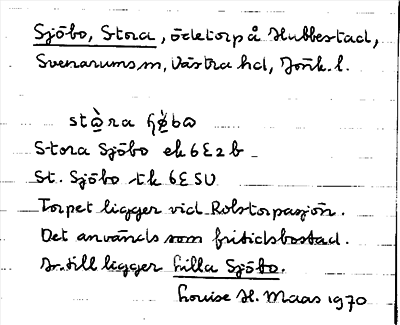 Sjöbo, Stora, ödetorp å Hubbestad,
Svenarums sn, Västra hd, Jönk. l.
Stora Sjöbo ek 6E2b
St. Sjöbo tk 6E SV
Torpet ligger vid Rolstorpasjön.
Det används som fritidsbostad.
I. till ligger Lilla Sjöbo.
Louise H. Maas 1970